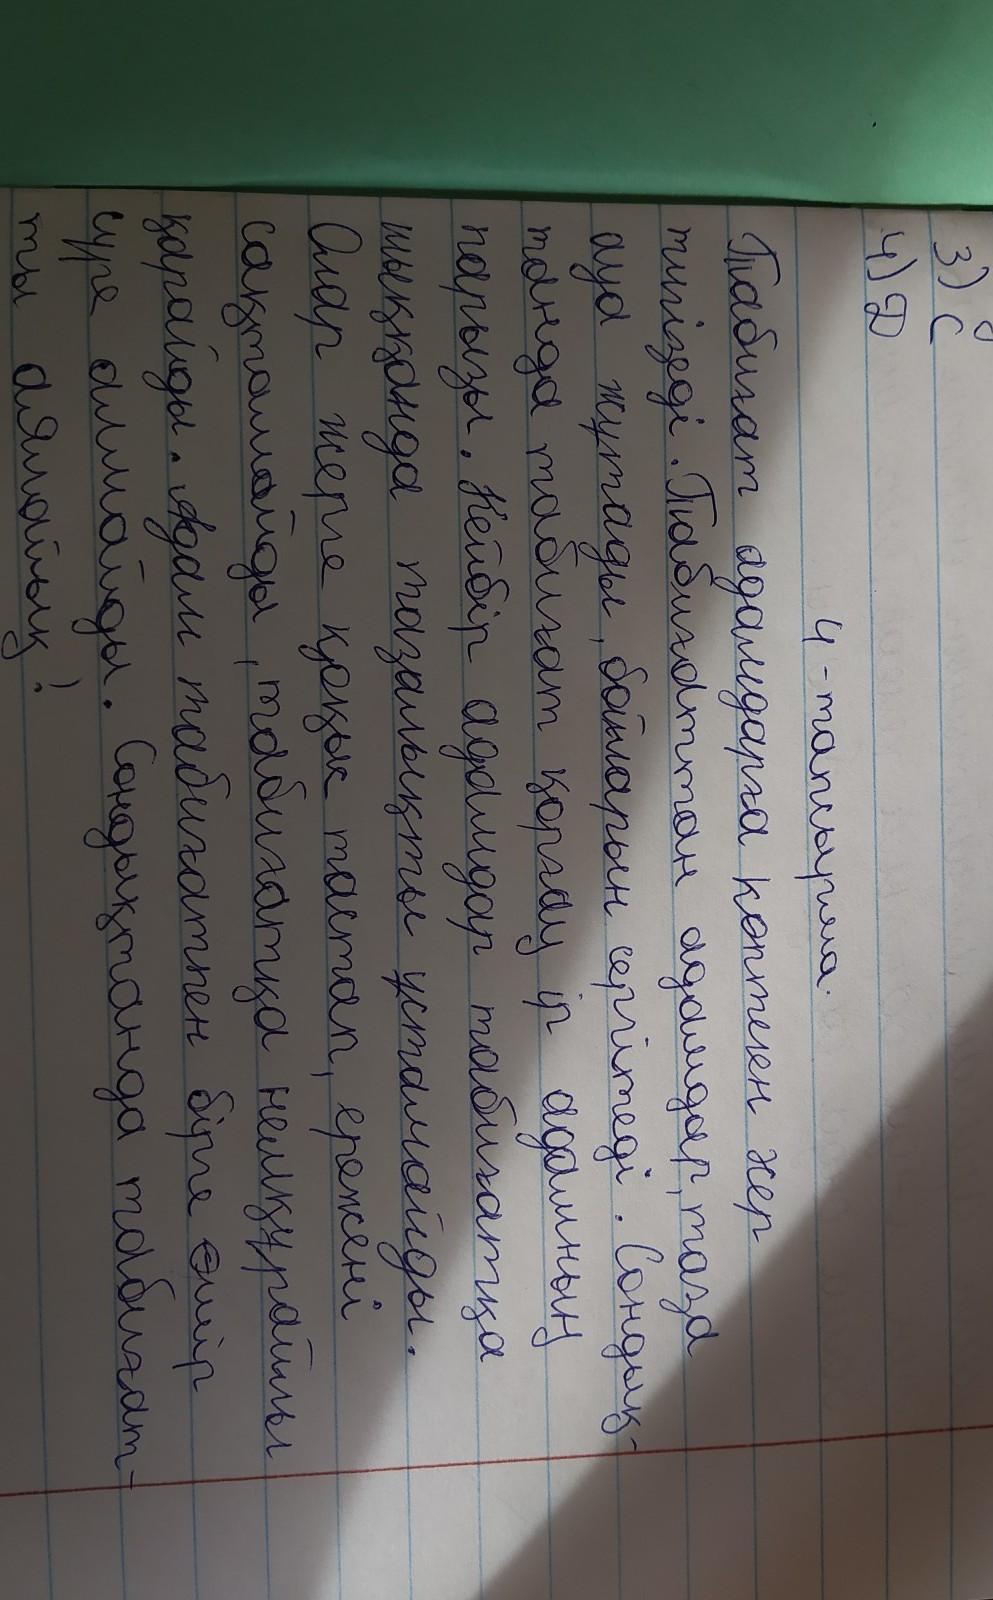 3) С
4) D
4-тапсырма.
Табиғат адамдарға көптекен жер
тигізеді. Табиғаттан адамдар, таза
ауа жұтады, бойларын сергітеді. Сондық-
танда табиғат қорғау әр адамның
парызы. Кейбір адамдар табиғатқа
шыққанда тазалықты ұстамайды.
Олар жерге қоқық тастап, ережені
сақтамайды, табиғатқа немқұрайлы
қарайды. Адам табиғатпен бірге өмір
сүре алмайды. Сондықтанда табиғат-
ты аялайық!